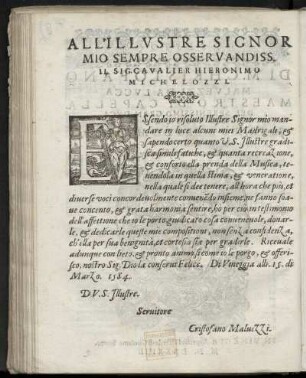 ALL'ILLVSTRE SIGNOR
MIO SEMPRE OSSERVANDISS.
IL SIG. CAVALIER HIERONIMO
MICHELOZZI.
Essendo io risoluto Illustre Signor mio man-
dare in luce alcuni miei Madrigali, &
sapendo certo quanto V. S. Illustre gradi-
sca simili fatiche, & quanta recreatione,
& conforto alla prenda della Musica, te-
nendola in quella stima, & veneratione,
nella quale si dee tenere, all'hora che più, et
diuerse voci concordeuolmente conuenẽdo insieme, ne fanno soa-
ue concento, & grata harmonia sentire, ho per certo testimonio
dell'affettione che io le porto, giudicato cosa conueneuole, donar-
le, & dedicarle queste mie compositioni, non senza confidenza,
ch'ella per sua benignità, et cortesia sia per gradirle. Riceuale
adunque con lieto, & pronto animo, sì come io le porgo, & offeri-
sco. nostro Sig. Dio la conserui Felice. Di Vinegia alli. 15. di
Marzo. 1584.
D. V. S. Illustre.
Seruitore
Cristofano Maluezzi.